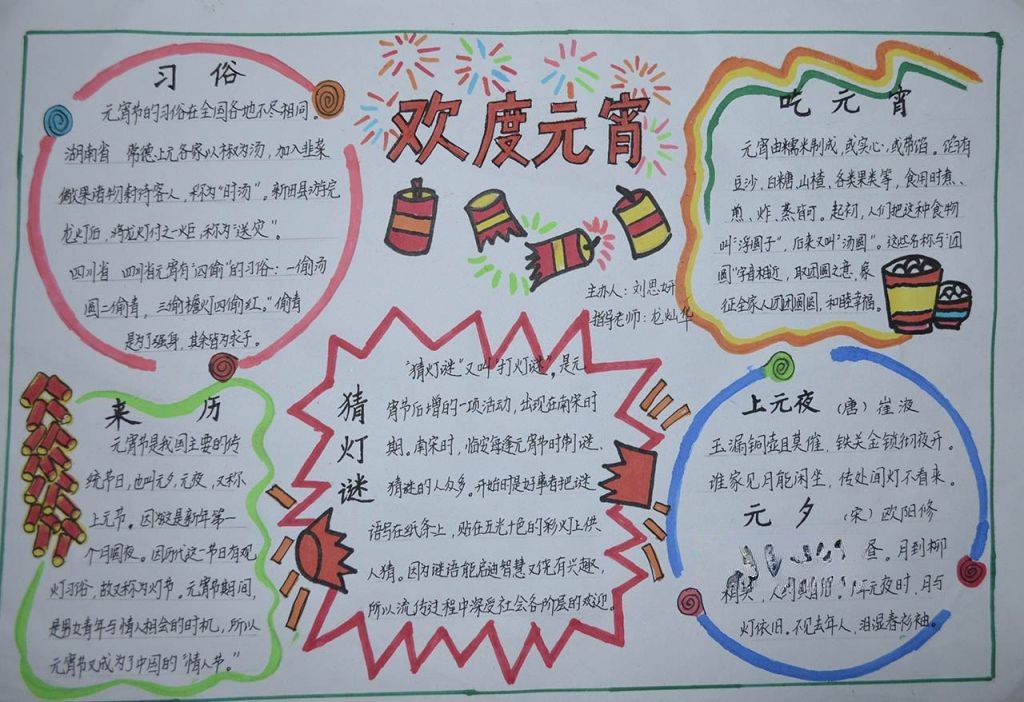 欢度元宵
主办人：刘思妍
指导老师：龙灿华
习 俗
元宵节的习俗在全国各地不尽相同。
湖南省 常德上元各家以椒为汤，加入韭菜
果诸物款待客人，称为"时汤"。新田县游完
龙灯后，将龙灯付之一炬，称为"送灾"。
四川省 四川省元宵有"四偷"的习俗：一偷汤
圆二偷青，三偷檐灯四偷红。"偷青
是为了强身，其余皆为求子。
来 历
元宵节是我国主要的传
统节日，也叫元夕，元夜，又称
上元节。因为这是新年第一
个月圆夜。因历代这一节日有观
灯习俗，故又称为灯节。元宵节期间，
是男女青年与情人相会的时机，所以
元宵节又成为了中国的"情人节。"
猜灯谜
"猜灯谜"又叫"打灯谜"。是元
宵节后增的一项活动，出现在南宋时
期。南宋时，临安每逢元宵节时制谜，
猜谜的人众多。开始时是好事者把谜
语写在纸条上，贴在五光十色的彩灯上供
人猜。因为谜语能启迪智慧又饶有兴趣，
所以流传过程中深受社会各阶层的欢迎。
吃 元 宵
元宵由糯米制成，或实心，或带馅。馅有
豆沙、白糖、山楂、各类果类等，食用时煮、
煎、炸、蒸皆可。起初，人们把这种食物
叫"浮圆子"，后来又叫"汤圆"。这些名称与"团
圆"字音相近，取团圆之意，象
征全家人团团圆圆，和睦幸福。
上元夜 （唐）崔液
玉漏铜壶且莫催，铁关金锁彻夜开。
谁家见月能闲坐，传处闻灯不看来。
元 夕 （宋）欧阳修
昼。月到柳
人约 元夜时，月与
灯依旧。不见去年人，泪湿春衫袖。